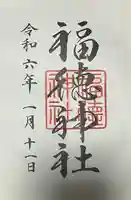 福穂神社
令和六年一月十一日